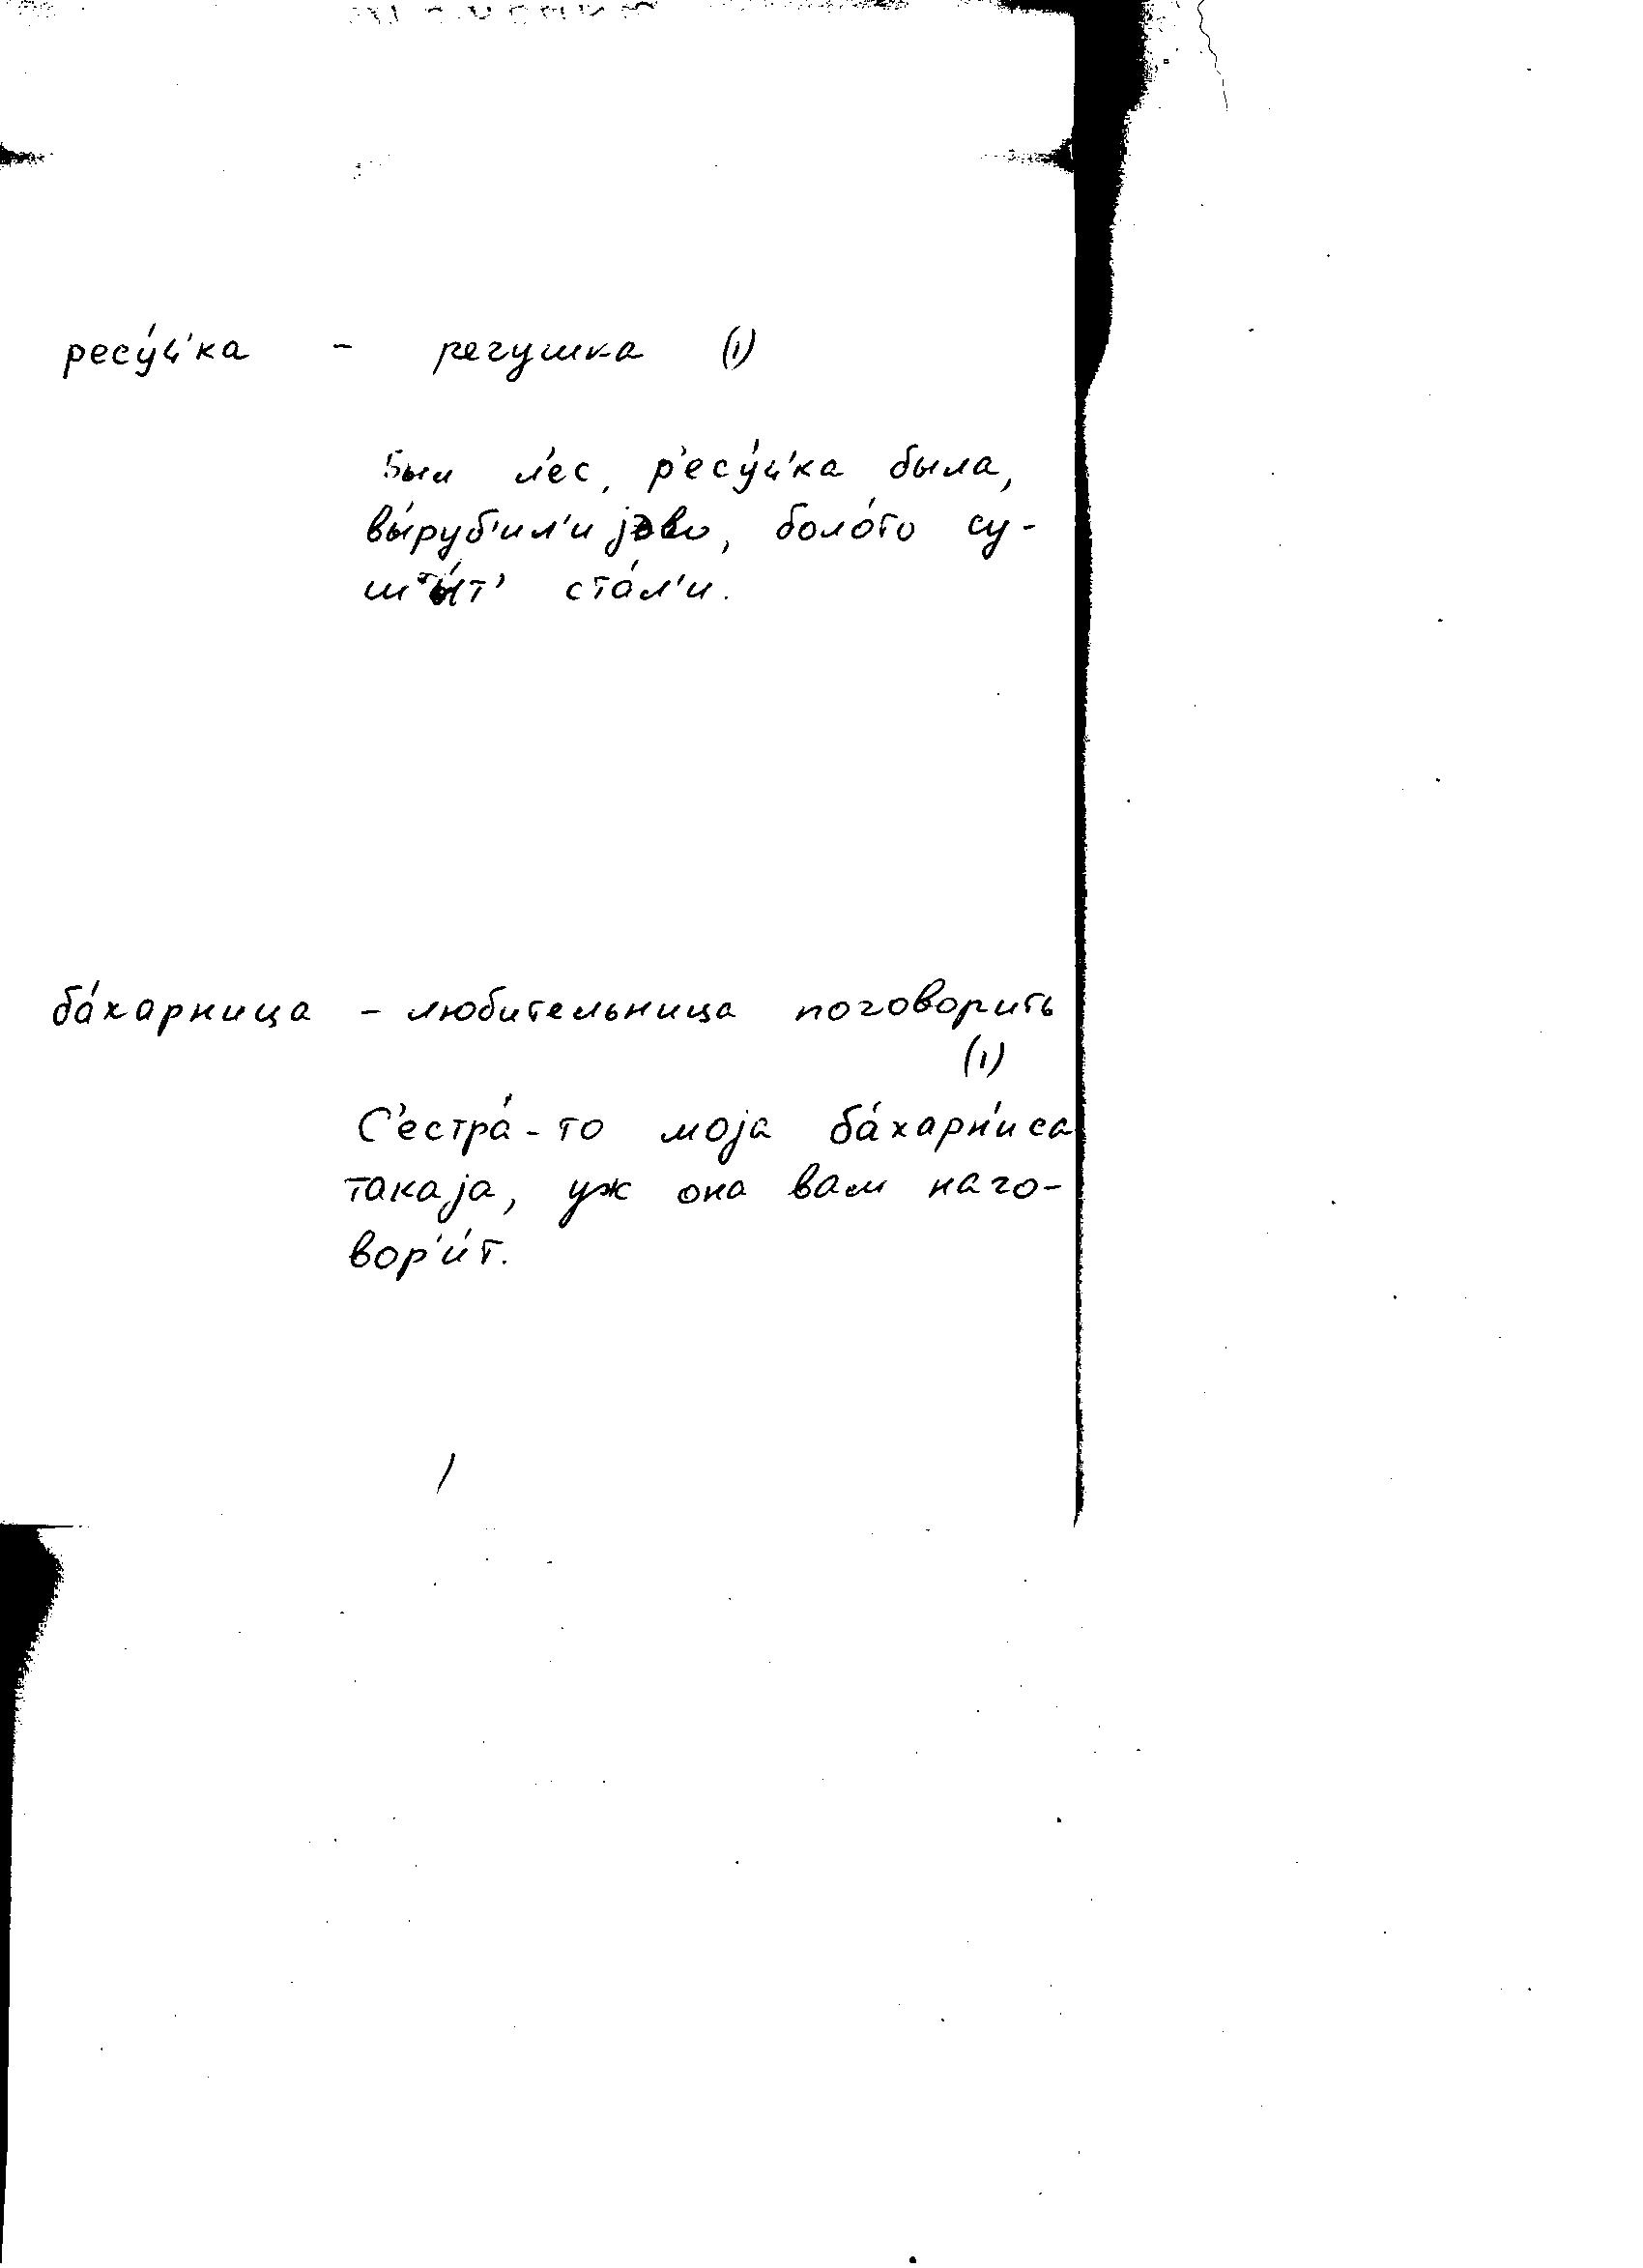 ресу́ц'ка – речушка (1)
Был л'ес, р'есу́ц'ка была,
вы́руб'ил'и jово, боло́то су-
шы́т' ста́л'и.
ба́харница – любительница поговорить
(1)
С'естра́-то моjа ба́харн'иса
такаjа, уж она вам наго-
вор'и́т.